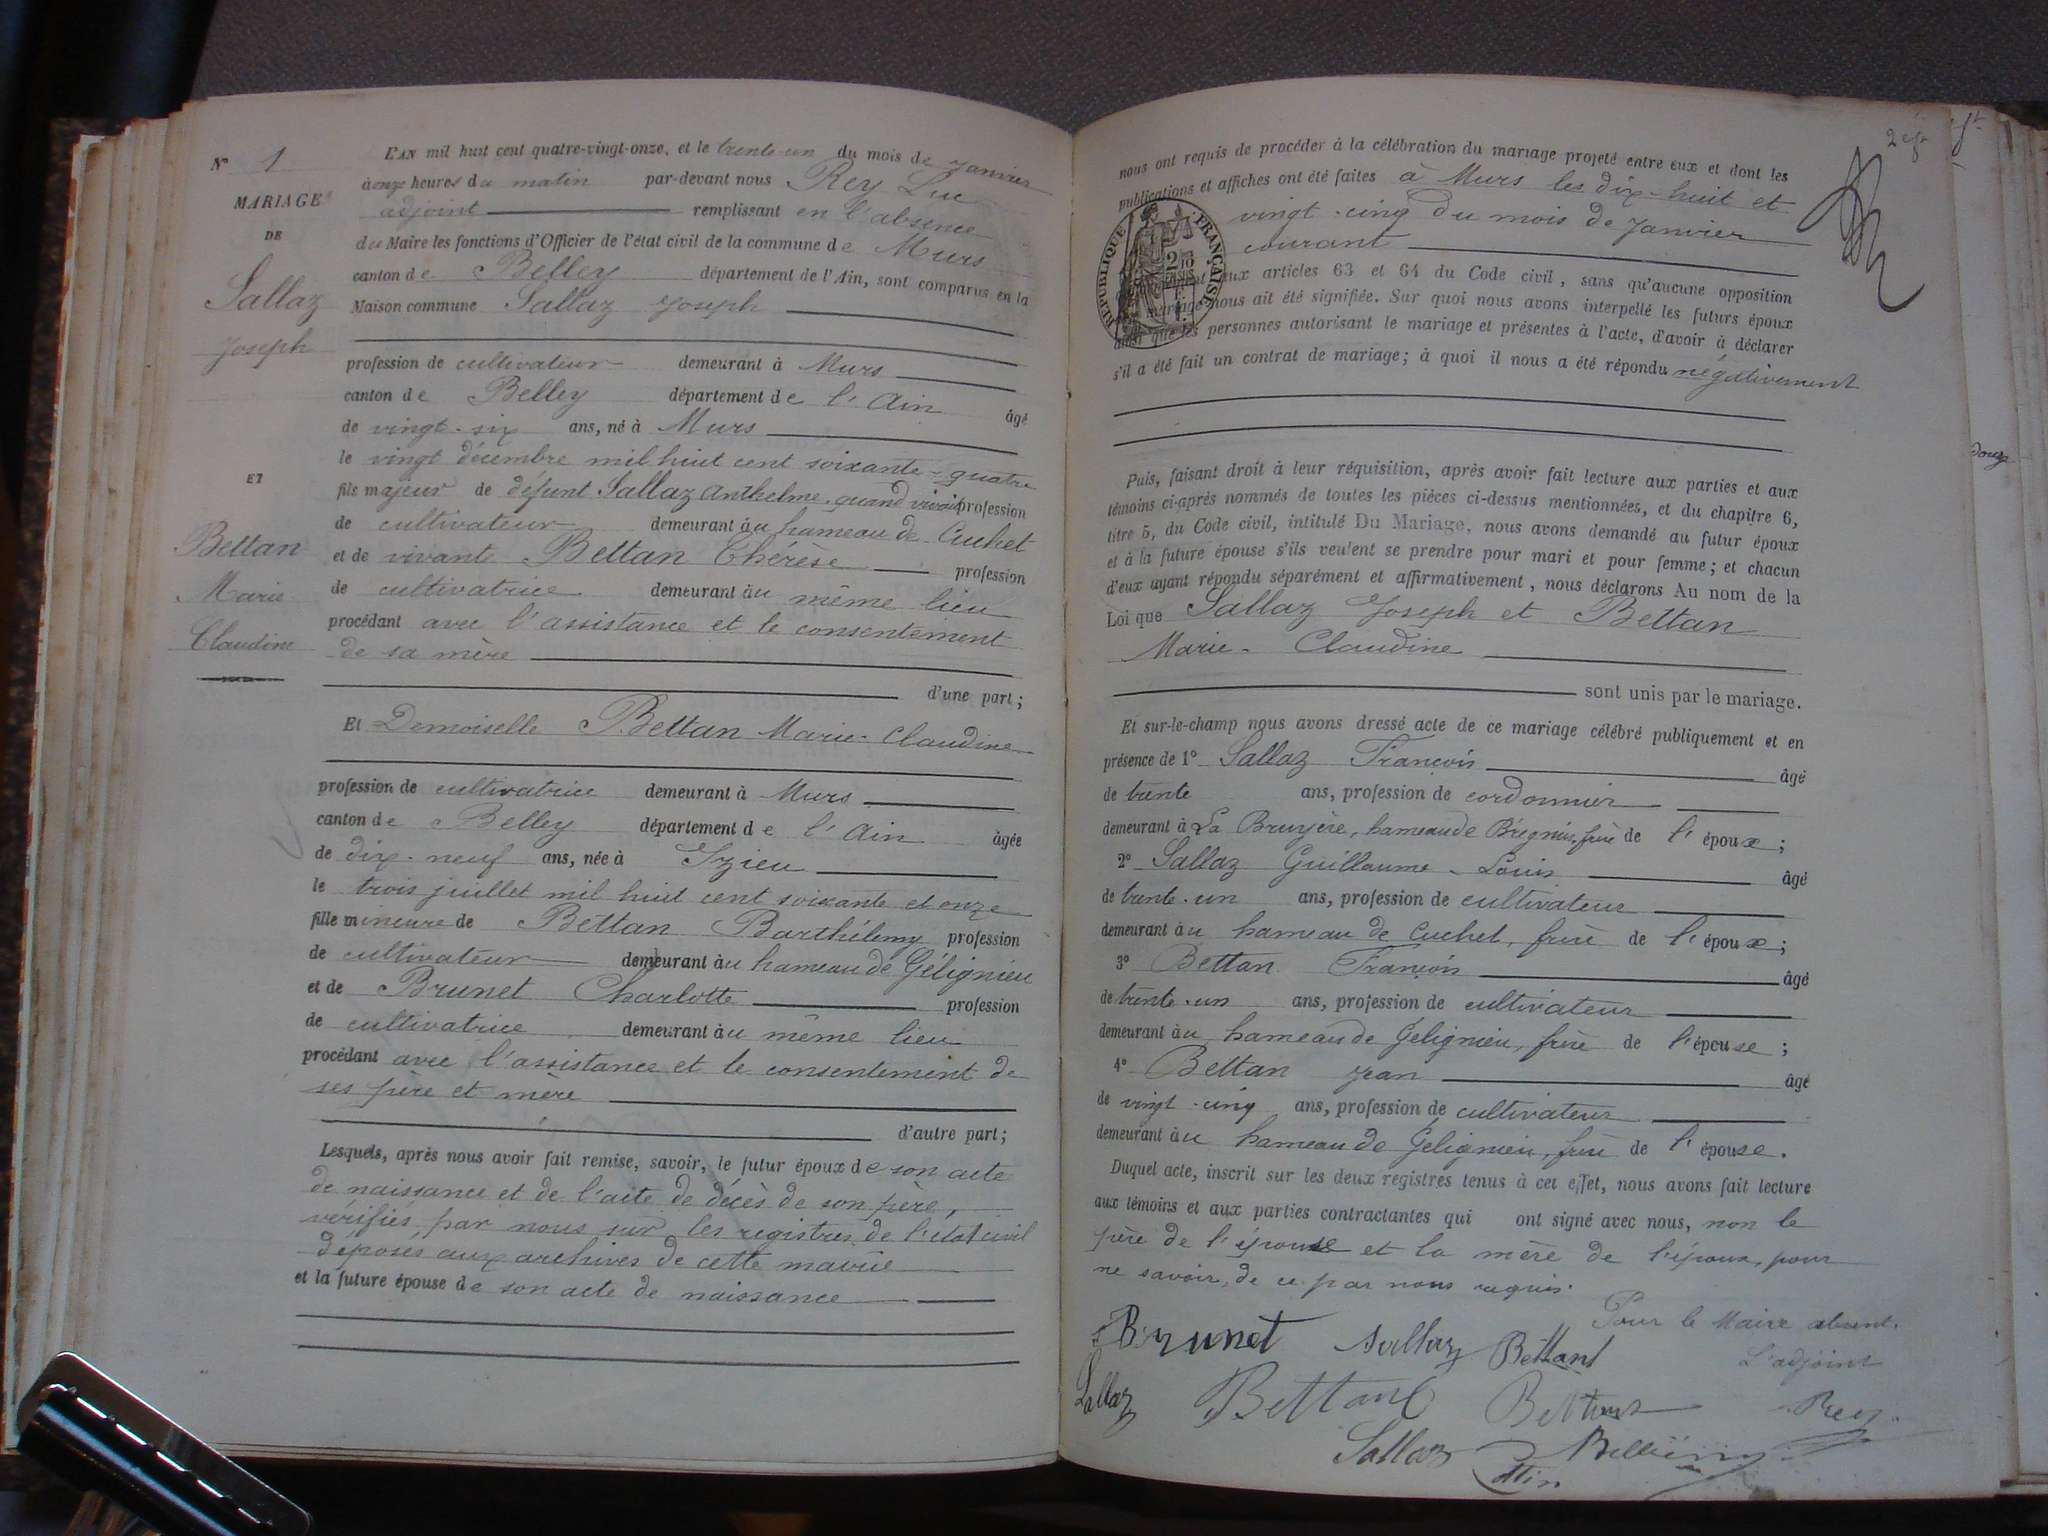 N° 1
MARIAGE
DE
Sallaz
Joseph
ET
Bettan
Marie
Claudine
L'AN mil huit cent quatre-vingt-onze, et le trente-un du mois de Janvier
à onze heures du matin par-devant nous Rey Luc
adjoint remplissant en l'absence
du Maire les fonctions d'Officier de l'état civil de la commune de Murs
canton de Belley département de l'Ain, sont comparus en la
Maison commune Sallaz Joseph
profession de cultivateur demeurant à Murs
canton de Belley département de l'Ain âgé
de vingt-six ans, né à Murs
le vingt décembre mil huit cent soixante-quatre
fils majeur de défunt Sallaz Anthelme quand vivait profession
de cultivateur demeurant au hameau de Cuchet
et de vivante Bettan Thérèse profession
de cultivatrice demeurant au même lieu
procédant avec l'assistance et le consentement
de sa mère
d'une part;
Et Demoiselle Bettan Marie-Claudine
profession de cultivatrice demeurant à Murs
canton de Belley département de l'Ain âgée
de dix-neuf ans, née à Izieu
le trois juillet mil huit cent soixante et onze
fille mineure de Bettan Barthélemy profession
de cultivateur demeurant au hameau de Gélignieu
et de Brunet Charlotte profession
de cultivatrice demeurant au même lieu
procédant avec l'assistance et le consentement de
ses père et mère
d'autre part;
Lesquels, après nous avoir fait remise, savoir, le futur époux de son acte
de naissance et de l'acte de décès de son père,
vérifiés par nous sur les registres de l'état civil
déposés aux archives de cette mairie
et la future épouse de son acte de naissance
nous ont requis de procéder à la célébration du mariage projeté entre eux et dont les
publications et affiches ont été faites à Murs les dix-huit et
vingt-cinq du mois de Janvier
courant
RÉPUBLIQUE FRANÇAISE
aux articles 63 et 64 du Code civil, sans qu'aucune opposition
mariage nous ait été signifiée. Sur quoi nous avons interpellé les futurs époux
ainsi que les personnes autorisant le mariage et présentes à l'acte, d'avoir à déclarer
s'il a été fait un contrat de mariage; à quoi il nous a été répondu négativement
Puis, faisant droit à leur réquisition, après avoir fait lecture aux parties et aux
témoins ci-après nommés de toutes les pièces ci-dessus mentionnées, et du chapitre 6,
titre 5, du Code civil, intitulé Du Mariage, nous avons demandé au futur époux
et à la future épouse s'ils veulent se prendre pour mari et pour femme; et chacun
d'eux ayant répondu séparément et affirmativement, nous déclarons Au nom de la
Loi que Sallaz Joseph et Bettan
Marie-Claudine
sont unis par le mariage.
Et sur-le-champ nous avons dressé acte de ce mariage célébré publiquement et en
présence de 1° Sallaz François âgé
de trente ans, profession de cordonnier
demeurant à La Bruyère, hameau de Brégnier, frère de l'époux;
2° Sallaz Guillaume-Louis âgé
de trente-un ans, profession de cultivateur
demeurant au hameau de Cuchet, frère de l'époux;
3° Bettan François âgé
de trente-un ans, profession de cultivateur
demeurant au hameau de Gélignieu, frère de l'épouse;
4° Bettan Jean âgé
de vingt-cinq ans, profession de cultivateur
demeurant au hameau de Gélignieu, frère de l'épouse.
Duquel acte, inscrit sur les deux registres tenus à cet effet, nous avons fait lecture
aux témoins et aux parties contractantes qui ont signé avec nous, non le
père de l'épouse et la mère de l'époux, pour
ne savoir, de ce par nous requis.
Pour le Maire absent.
L'adjoint
Brunet Sallaz Bettant
Sallaz Bettant Bettant Rey
Sallaz